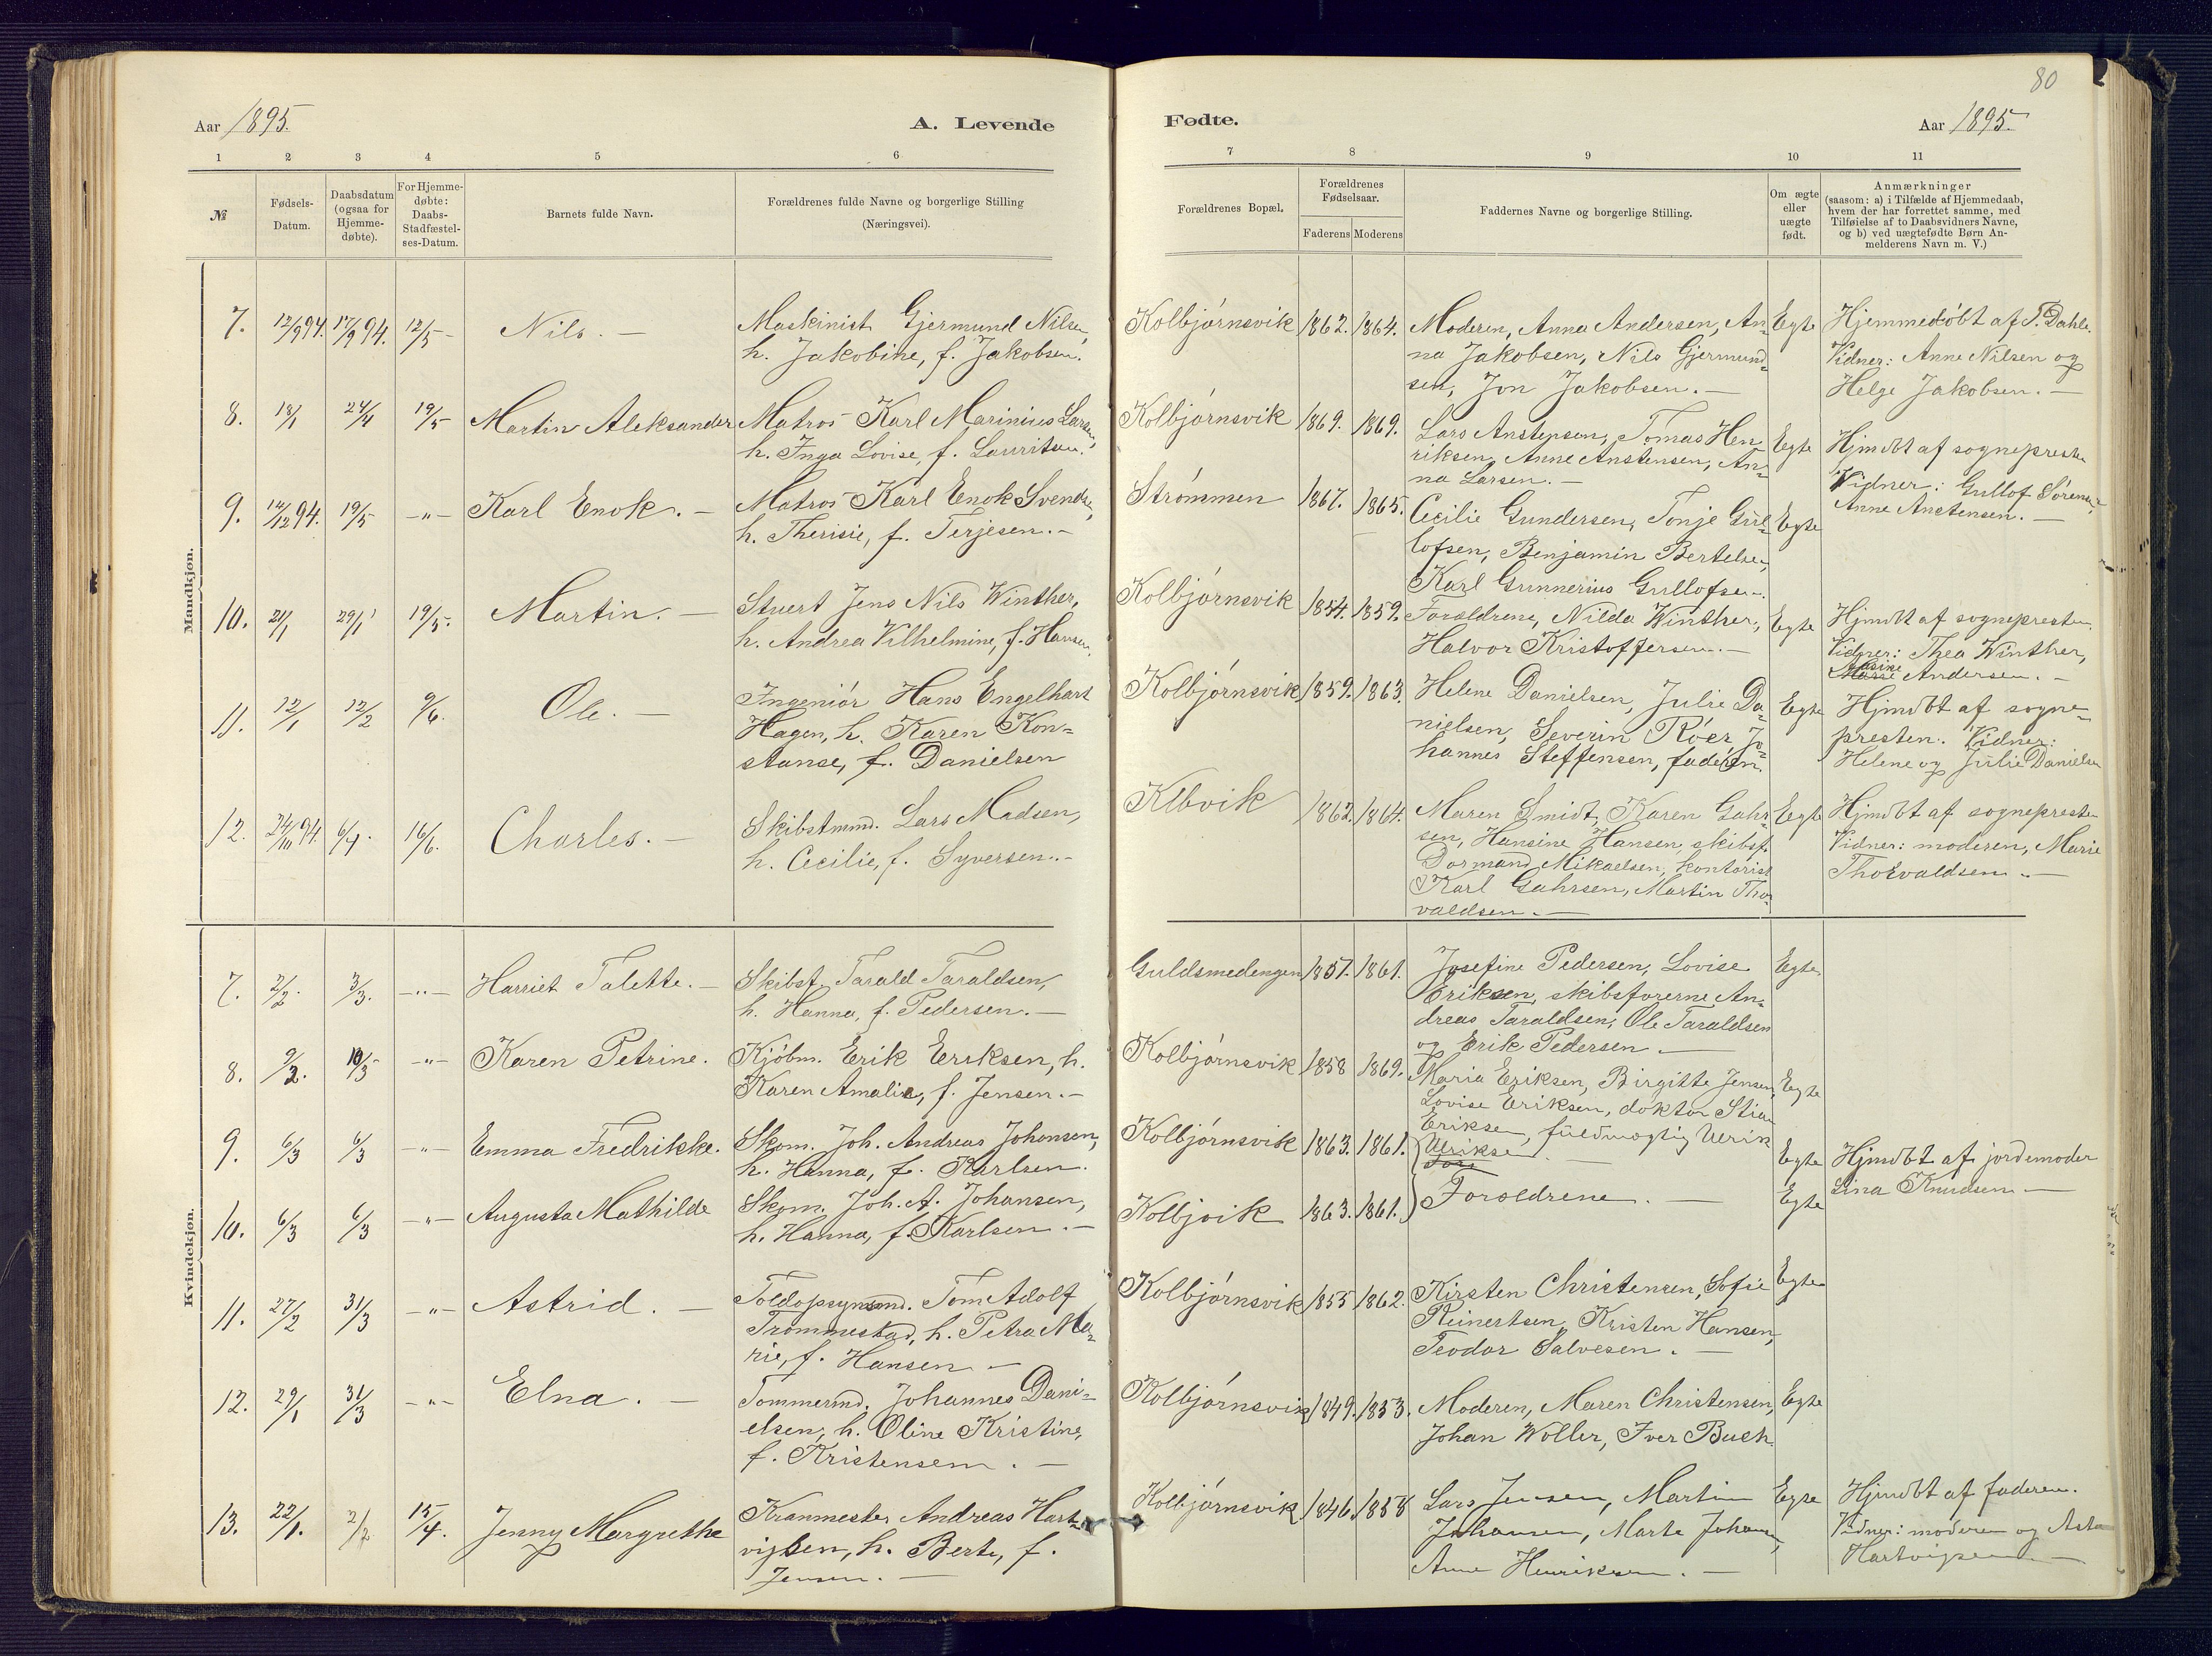 80
Aar 1895.
A. Levende
Fødte.
Aar 1895.
1 2 3 4 5 6 7 8 9 10 11
№
Fødsels-
Datum.
Daabsdatum
(ogsaa for
Hjemme-
døbte).
For Hjemme-
døbte:
Daabs-
Stadfæstel-
ses-Datum.
Barnets fulde Navn.
Forældrenes fulde Navne og borgerlige Stilling
(Næringsvei).
Forældrenes Bopæl.
Forældrenes
Fødselsaar.
Faderens Moderens
Faddernes Navne og borgerlige Stilling.
Om ægte
eller
uægte
født.
Anmærkninger
(saasom: a) i Tilfælde af Hjemmedaab,
hvem der har forrettet samme, med
Tilføielse af to Daabsvidners Navne,
og b) ved uægtefødte Børn An-
melderens Navn m. V.)
Mandkjøn.
7. 12/9 94. 17/9 94. 12/5 – Nils. –
Maskinist Gjermund Nilsen,
h. Jakobine, f. Jakobsen.
Kolbjørnsvik 1862. 1864.
Moderen, Anna Andersen, An-
na Jakobsen, Nils Gjermund-
sen, Jon Jakobsen. –
Egte
Hjemmedøbt af T. Dahle.
Vidner: Anne Nilsen og
Helge Jakobsen. –
8. 18/1 24/4 19/5 Martin Aleksander
Matros Karl Marinius Larsen,
h. Inga Lovise, f. Lauritsen.
Kolbjørnsvik 1869. 1869.
Lars Anstensen, Tomas Hen
riksen, Anne Anstensen, An-
na Larsen. –
Egte
Hjmdbt af sognepresten
Vidner: Gullof Sørensen,
Anne Anstensen. –
9. 14/12 94. 19/5 –"– Karl Enok. –
Matros Karl Enok Svendsen,
h. Therisie, f. Terjesen. –
Strømmen 1867. 1865.
Cecilie Gundersen, Tonje Gul-
lofsen, Benjamin Bertelsen,
Karl Gunnerius Gullofsen.
Egte
10. 21/1 29/1 19/5. Martin. –
Stuert Jens Nils Winther,
h. Andrea Vilhelmine, f. Hansen.
Kolbjørnsvik 1854. 1859.
Forældrene, Nilda Winther,
Halvor Kristoffersen. –
Egte
Hjmdbt af sognepresten.
Vidner: Thea Winther,
Andersen. –
11. 12/1 12/2 9/6. Ole. –
Ingeniør Hans Engelhart
Hagen, h. Karen Kon-
stanse, f. Danielsen
Kolbjørnsvik 1859. 1863.
Helene Danielsen, Julie Da-
nielsen, Severin Røer, Jo-
hannes Steffensen, faderen.
Egte
Hjmdbt af sogne-
presten. Vidner:
Helene og Julie Danielsen
12. 24/10 94. 6/4. 16/6. Charles. –
Skibstmmd. Lars Madsen,
h. Cecilie, f. Syversen. –
Klbvik 1862. 1864.
Maren Smidt, Karen Gahr-
sen, Hansine Hansen, skibsf.
Dormand Mikaelsen, kontorist
Karl Gahrsen, Martin Tho-
valdsen. –
Egte
Hjmdbt af sognepresten
Vidner: moderen, Marie
Thorvaldsen. –
Kvindekjøn.
7. 2/2. 3/3. –"– Harriet Talette. –
Skibsf. Tarald Taraldsen,
h. Hanna, f. Pedersen. –
Guldsmedengen 1857. 1861.
Josefine Pedersen, Lovise
Eriksen, skibsførerne An-
dreas Taraldsen, Ole Taraldsen
og Erik Pedersen –
Egte
8. 9/2. 10/3 –"– Karen Petrine.
Kjøbm. Erik Eriksen, h.
Karen Amalie, f. Jensen. –
Kolbjørnsvik 1858 1869.
Maria Eriksen, Birgitte Jensen,
Lovise Eriksen, doktor Stian
Eriksen, fuldmægtig Ulrik
Ulriksen. –
Egte
9. 6/3 6/3 –"– Emma Fredrikke.
Skom. Joh. Andreas Johansen,
h. Hanna, f. Karlsen.
Kolbjørnsvik 1863. 1861.
Egte
Hjmdbt af jordemoder
Lina Knudsen –
10. 6/3 6/3 –"– Augusta Mathilde
Skom. Joh. A. Johansen,
h. Hanna, f. Karlsen. –
Kolbjvik 1863. 1861.
Forældrene. –
Egte
11. 27/2 31/3 –"– Astrid. –
Toldopsynsmd. Tom Adolf
Trommestad, h. Petra Ma-
rie, f. Hansen –
Kolbjørnsvik 1855 1862.
Kirsten Christensen, Sofie
Reinertsen, Kristen Hansen,
Teodor Salvesen. –
Egte
12. 29/1 31/3 –"– Elna. –
Tømmermd. Johannes Dani-
elsen, h. Oline Kristine,
f. Kristensen. –
Kolbjørnsvik 1849. 1853.
Moderen, Maren Christensen,
Johan Woller, Iver Buch
Egte
13. 22/1. 2/2 15/4. Jenny Margrethe
Kranmester Andreas Hart-
vigsen, h. Berte, f.
Jensen. –
Kolbjørnsvik 1846. 1858
Lars Jensen, Martin
Johansen, Marte Johansen,
Anne Henriksen. –
Egte
Hjmdbt af faderen.
Vidner: moderen og Asta
Hartvigsen –